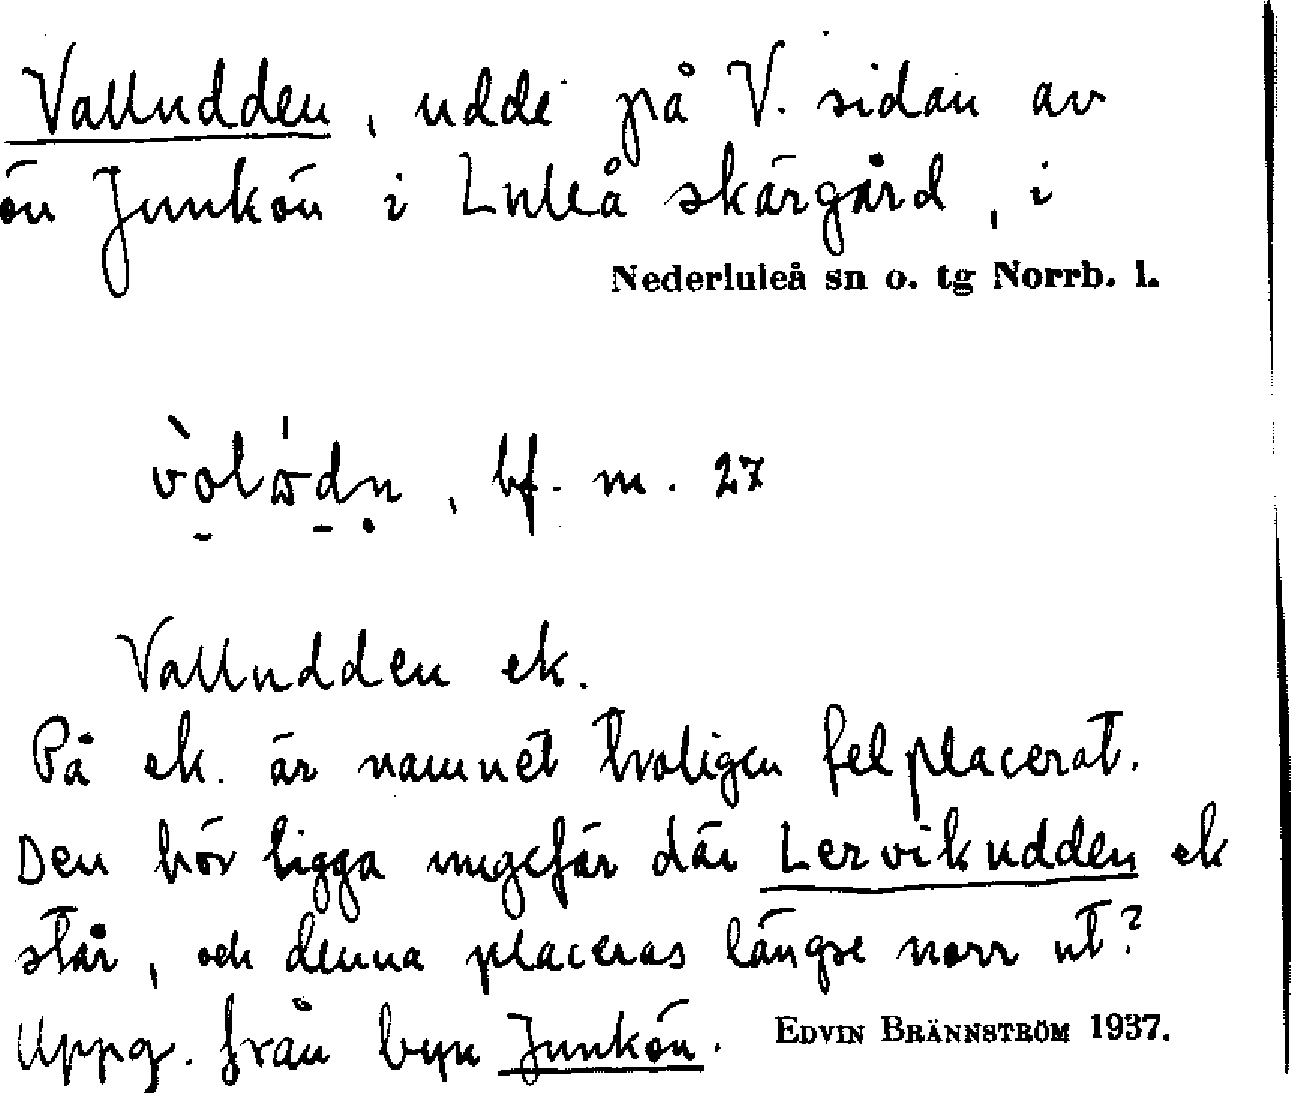 Valludden, udde på V. sidan av
ön Junkön i Luleå skärgård, i
Nederluleå sn o. tg Norrb. l.
, bf. m. 27
Valludden ek.
På ek. är namnet troligen felplacerat.
Den bör ligga ungefär där Lervikudden ek
står, och denna placeras längre norr ut?
Uppg. från byn Junkön. EDVIN BRÄNNSTRÖM 1937.